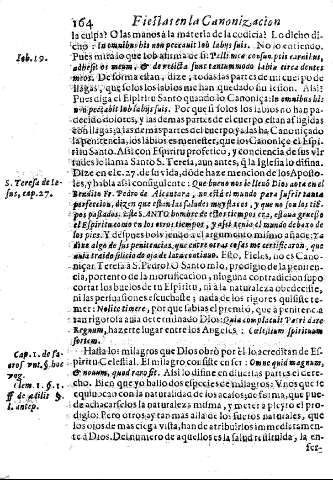 164 Fiestas en la Canonizacion
la culpa? O las manos à la materia de la codicia? Lo dicho dicho:
cho: In omnibus his non peccauit Iob labijs suis. No lo entiendo.
Iob. 19.
Pues mira lo que Iob afirma de si: Pelli meæ consumptis carnibus,
adhæsit os meum, & derelicta sunt tantummodo labia circa dentes
meos. De forma estan, dize, todas las partes de mi cuerpo de
llagas, que solos los labios me han quedado sin lesion. Assi?
Pues diga el Espiritu Santo quando lo Canoniça: In omnibus his
non peccauit Iob labijs suis. Por que si solos los labios no han padecido
dolores, y las demas partes de el cuerpo estan afligidas
con llagas; à las demas partes del cuerpo ya las ha Canonizado
la penitencia, los labios es menester, que los Canonice el Espiritu
Santo. Assi con Espiritu profetico, y conciencia de sus virtudes
lo llama Santo S. Tereta, aun antes, q̃ la Iglesia lo difina.
Dize en el c. 27. de su vida, dòde haze mencion de los Apostoles,
S. Teresa de Iesus,
cap. 27.
y habla assi consiguient:: Que bueno nos le llevò Dios aora en el
Bendito Fr. Pedro de Alcantara, no està el mundo para sufrir tanta
perfeccion, dizen que estan las saludes mas flacas, y que no son los tiempos
passados. Este SANTO hombre de este tiempo era, estaua grueso
el Espiritu como en los otros tiempos, y assi tenia el mundo debaxo de
los pies. Y despues boluiendo a el argumento mismo añade: Ya
dixe algo de sus penitencias, que entre otras cosas me certificaron, que
auia traido silicio de oja de lata continuo. Esto, Fieles, no es Canoniçar
Tereta à S. Pedro? O Santo mio, prodigio de la penitencia,
portento de la mortificacion, ninguna contradicion supo
cortar los buelos de tu Espiritu, ni à la naturaleza obedeciste,
ni las persuasiones escuchaste; nada de los rigores quisiste temer:
Nolite timere, por que sabias el premio, que à penitencia
tan rigorosa auia determinado Dios: Quia complacuit Patri dare
Regnum, hazerte lugar entre los Angeles: Cælestium spirituum
sortem.
Cap. 1. de sacros
vnt. §. hac
vng.
Clem. 1. §. 1.
ff de ædilit §.
l. antep.
Hasta los milagros que Dios obrò por él lo acreditan de Espiritu
Celestial. El milagro consiste en ser: Omne quid magnum,
& nouum, quod raro fit. Assi lo difine en diuersas partes el derecho.
Bien que yo hallo dos especies de milagros: Vnos que se
equiuocan con la naturaleza de los acasos, de forma, que puede
achacarselos la naturaleza misma, y meter à pleyto el prodigio:
Pero otros ay tan mas allà de los rasgos naturales, que
los ojos de mas ciega vista, han de atribuirlos immediatamente
à Dios. De numero de aquellos es la salud restituida, la enfer-